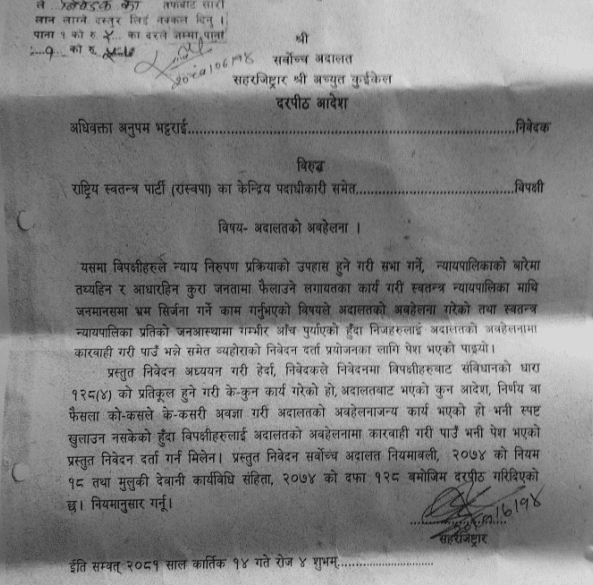 ले निवेदक का तर्फबाट सारी
लान लाग्ने दस्तुर लिई नक्कल दिनु ।
पाना १ को रु. का दरले जम्मा पाना
को रु.
श्री
सर्वोच्च अदालत
सहरजिष्ट्रार श्री अच्युत कुईकेल
दरपीठ आदेश
अधिवक्ता अनुपम भट्टराई..........................................................................निवेदक
विरुद्ध
राष्ट्रिय स्वतन्त्र पार्टी (रास्वपा) का केन्द्रिय पदाधीकारी समेत...................................विपक्षी
विषय- अदालतको अवहेलना ।
यसमा विपक्षीहरुले न्याय निरुपण प्रक्रियाको उपहास हुने गरी सभा गर्ने, न्यायपालिकाको बारेमा
तथ्यहिन र आधारहिन कुरा जनतामा फैलाउने लगायतका कार्य गरी स्वतन्त्र न्यायपालिका माथि
जनमानसमा भ्रम सिर्जना गर्ने काम गर्नुभएको विषयले अदालतको अवहेलना गरेको तथा स्वतन्त्र
न्यायपालिका प्रतिको जनआस्थामा गम्भीर आँच पुर्याएको हुँदा निजहरुलाई अदालतको अवहेलनामा
कारवाही गरी पाउँ भन्ने समेत व्यहोराको निवेदन दर्ता प्रयोजनका लागि पेश भएको पाइयो।
प्रस्तुत निवेदन अध्ययन गरी हेर्दा, निवेदकले निवेदनमा विपक्षीहरुबाट संविधानको धारा
१२८(४) को प्रतिकूल हुने गरी के-कुन कार्य गरेको हो, अदालतबाट भएको कुन आदेश, निर्णय वा
फैसला को-कसले के-कसरी अवज्ञा गरी अदालतको अवहेलनाजन्य कार्य भएको हो भनी स्पष्ट
खुलाउन नसकेको हुँदा विपक्षीहरुलाई अदालतको अवहेलनामा कारवाही गरी पाउँ भनी पेश भएको
प्रस्तुत निवेदन दर्ता गर्न मिलेन। प्रस्तुत निवेदन सर्वोच्च अदालत नियमावली, २०७४ को नियम
१८ तथा मुलुकी देवानी कार्यविधि संहिता, २०७४ को दफा १२८ बमोजिम दरपीठ गरिदिएको
छ। नियमानुसार गर्नू।
सहरजिष्ट्रार
ईति सम्वत् २०८१ साल कार्तिक १४ गते रोज ४ शुभम्.........................